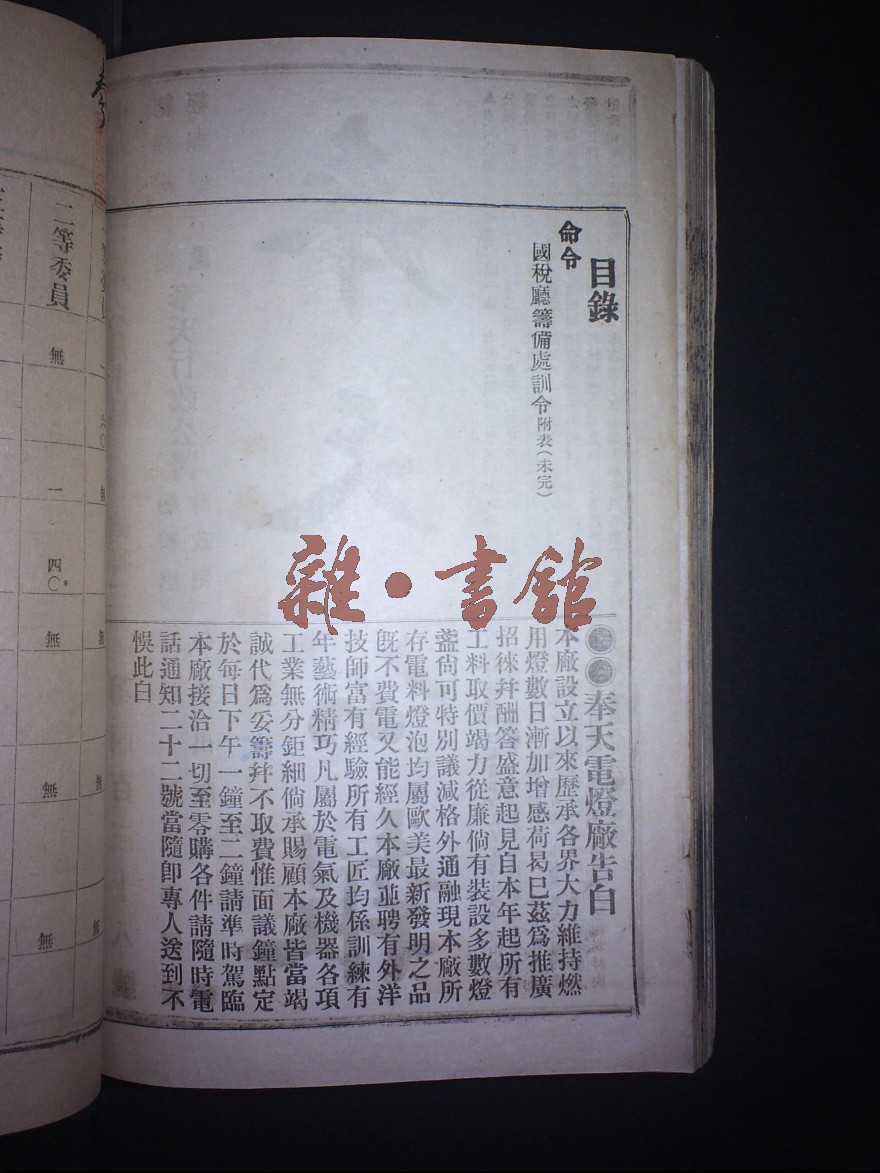 目錄
命令
國稅廳籌備處訓令附表(未完)
雜•書館
奉天電燈廠告白
本廠設立以來歷承各界大力維持燃
用燈數日漸加增感荷曷巳茲爲推廣
招徠并酬答盛意起見自本年起所有
工料取價竭力從廉倘有裝設多數燈
盞尙可特別議減格外通融現本廠所
存電料燈泡均屬歐美最新發明之品
旣不費電又能經久本廠並聘有外洋
技師富有經驗所有工匠均係訓練有
年藝術精巧凡屬於電氣及機器各項
工業無分鉅細倘承賜顧本廠皆當竭
誠代爲妥籌幷不取費惟面議鐘點定
於每日下午一鐘至二鐘請準時駕臨
本廠接洽一切至零購各件請隨時電
話通知二十二號當隨卽專人送到不
悞此白
二等委員
無
一
四〇
無
無
無